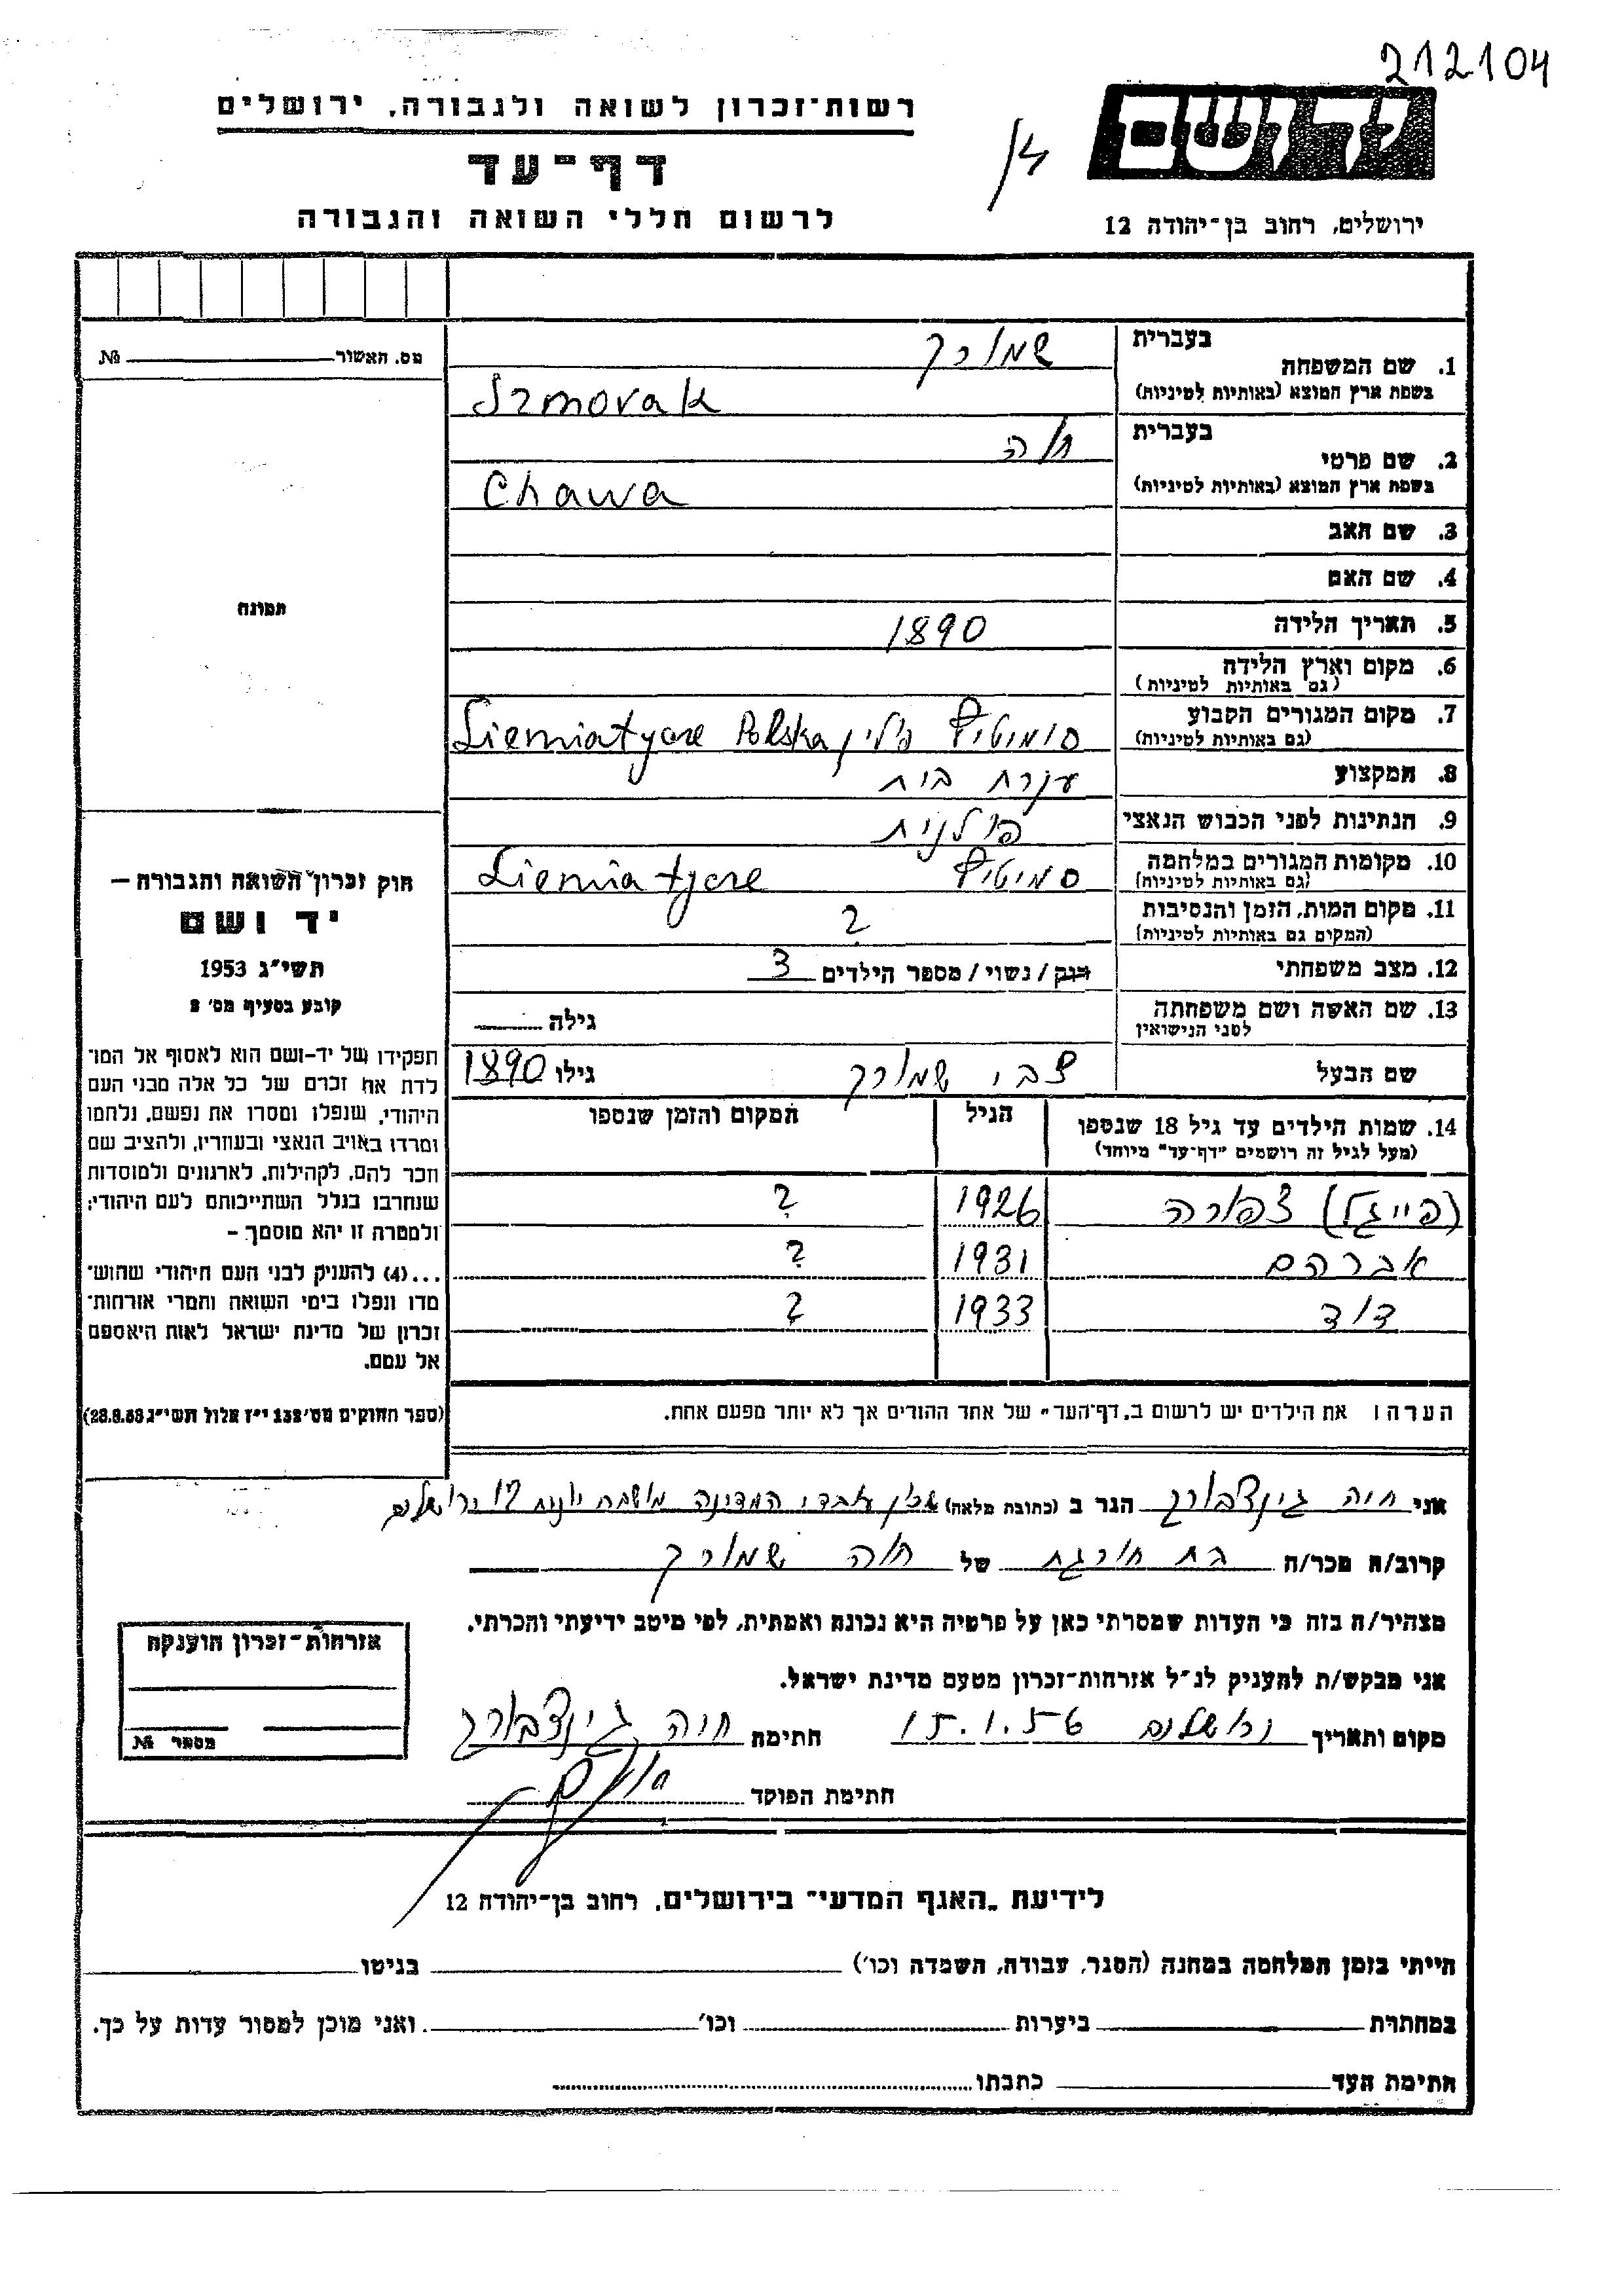 212104
יד ושם
ירושלים, רחוב בן-יהודה 12
רשות-זכרון לשואה ולגבורה, ירושלים
דף-עד
לרשום חללי השואה והגבורה
מס. האשור № 
תמונה
1. שם המשפחה בעברית שמורק
בשפת ארץ המוצא (באותיות לטיניות) Szmorak
2. שם פרטי בעברית חוה
בשפת ארץ המוצא (באותיות לטיניות) Chawa
3. שם האב
4. שם האם
5. תאריך הלידה 1890
6. מקום וארץ הלידה
(גם באותיות לטיניות)
7. מקום המגורים הקבוע סימיטיץ פולין Siemiatycze Polska
(גם באותיות לטיניות)
8. המקצוע עקרת בית
9. הנתינות לפני הכבוש הנאצי פולנית
10. מקומות המגורים במלחמה סמיטיץ Siemiatycze
(גם באותיות לטיניות)
11. מקום המות, הזמן והנסיבות ?
(המקום גם באותיות לטיניות)
12. מצב משפחתי רוק/נשוי/מספר הילדים 3
13. שם האשה ושם משפחתה
לפני הנישואין גילה
שם הבעל צבי שמורק גילו 1890
14. שמות הילדים עד גיל 18 שנספו הגיל המקום והזמן שנספו
(מעל לגיל זה רושמים "דף-עד" מיוחד)
(פייגל) צפורה 1926 ?
אברהם 1931 ?
דוד 1933 ?
הערה: את הילדים יש לרשום ב"דף-העד" של אחד ההורים אך לא יותר מפעם אחת.
חוק זכרון השואה והגבורה –
יד ושם
תשי"ג 1953
קובע בסעיף מס' 2
תפקידו של יד-ושם הוא לאסוף אל המו־
לדת את זכרם של כל אלה מבני העם
היהודי, שנפלו ומסרו את נפשם, נלחמו
ומרדו באויב הנאצי ובעוזריו, ולהציב שם
וזכר להם, לקהילות, לארגונים ולמוסדות
שנחרבו בגלל השתייכותם לעם היהודי;
ולמטרה זו יהא מוסמך –
...(4) להעניק לבני העם היהודי שהוש־
מדו ונפלו בימי השואה והמרי אזרחות־
זכרון של מדינת ישראל לאות היאספם
אל עמם.
(ספר החוקים מס' 132 י"ז אלול תשי"ג 28.8.53)
אני חיה גינצבורג הגר ב (כתובת מלאה) שכון עובדי המדינה 12 ירושלים
קרוב/ה מכר/ה בת חורגת של חוה שמורק
מצהיר/ה בזה כי העדות שמסרתי כאן על פרטיה היא נכונה ואמתית, לפי מיטב ידיעתי והכרתי.
אני מבקש/ת להעניק לנ"ל אזרחות-זכרון מטעם מדינת ישראל.
מקום ותאריך ירושלים 15.1.56 חתימה חיה גינצבורג
חתימת הפוקד
אזרחות-זכרון הוענקה
מספר №
לידיעת "האגף המדעי" בירושלים, רחוב בן-יהודה 12
הייתי בזמן המלחמה במחנה (הסגר, עבודה, השמדה וכו') בגיטו
במחתרת ביערות וכו' ואני מוכן למסור עדות על כך.
חתימת העד כתבתו